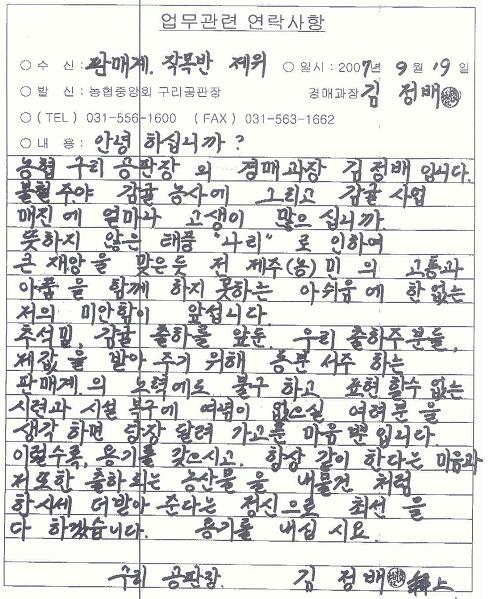 업무관련 연락사항
○ 수 신: 판매계. 작목반 제위 ○ 일시 : 2007년 9월 19일
○ 발 신 : 농협중앙회 구리공판장 경매과장 김 정배
○ (TEL) 031-556-1600 (FAX) 031-563-1662
○ 내 용: 안녕 하십니까?
농협 구리 공판장 의 경매과장 김정배 입니다.
불철주야 감귤 농사에 그리고 감귤 사업
매진에 얼마나 고생이 많으십니까.
뜻하지 않은 태풍 "나리" 로 인하여
큰 재앙을 맞은듯 전 제주(농)민 의 고통과
아픔을 함께 하지 못하는 아쉬움에 한없는
저의 미안함이 앞섭니다.
추석및, 감귤 출하를 앞둔. 우리 출하주분들,
제값을 받아 주기 위해 동분서주 하는
판매계. 의 노력에도 불구하고 표현 할수 없는
시련과 시설 복구에 여념이 없으실 여러분을
생각 하면 당장 달려 가고픈 마음뿐입니다.
이럴수록, 용기를 갖으시고. 항상 같이 한다는 마음과
저또한 출하되는 농산물을 내물건 처럼
한시세 더받아 준다는 정신으로 최선 을
다 하겠습니다. 용기를 내십시요.
구리 공판장. 김 정배 上